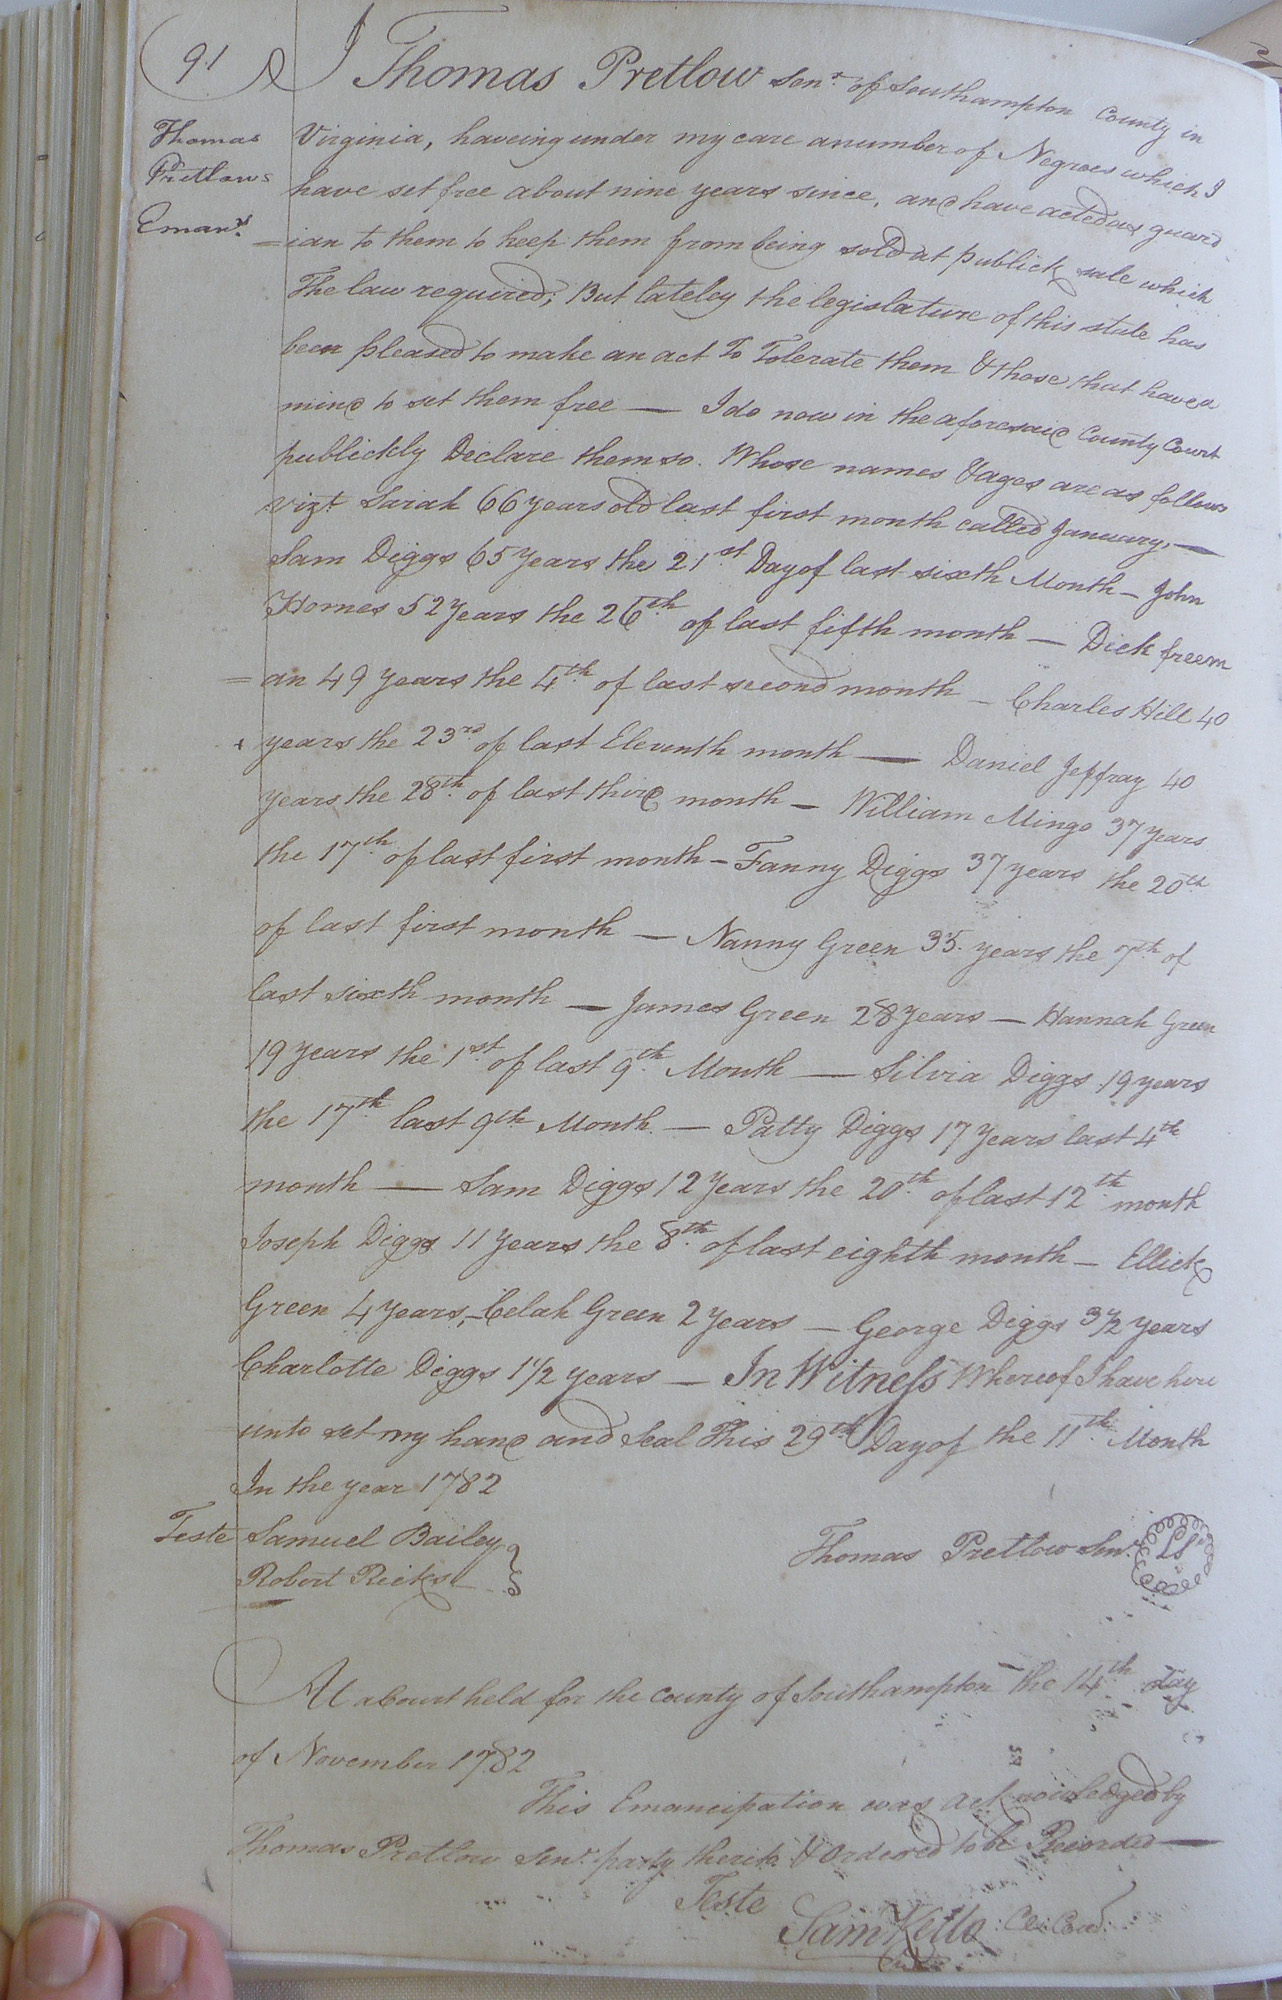 91
Thomas
Pretlows
Emann.
I Thomas Pretlow Senr. of Southampton County in
Virginia, haveing under my care a number of Negroes which I
have set free about nine years since, and have acted as guard
=ian to them to keep them from being sold at publick sale which
The law required; But lateley the legislature of this state has
been pleased to make an act To Tolerate them & those that have a
mind to set them free — I do now in the aforesaid County Court
publickly Declare them so. Whose names & ages are as follows
vizt Sarah 66 years old last first month called January, —
Sam Diggs 65 Years the 21st Day of last sixth Month — John
Homes 52 Years the 26th of last fifth month — Dick freem
=an 49 Years the 4th of last second month — Charles Hill 40
years the 23rd of last Eleventh month — Daniel Jeffray 40
Years the 28th of last third month — William Mingo 37 Years
the 17th of last first month — Fanny Diggs 37 years the 20th
of last first month — Nanny Green 35 years the 7th of
last sixth month — James Green 28 Years — Hannah Green
19 Years the 1st of last 9th Month — Silvia Diggs 19 years
the 17th last 9th Month — Patty Diggs 17 Years last 4th
month — Sam Diggs 12 Years the 20th of last 12th month
Joseph Diggs 11 Years the 8th of last eighth month — Ellick
Green 4 Years, — Celah Green 2 Years — George Diggs 3½ years
Charlotte Diggs 1½ years — In Witness Whereof I have here
unto set my hand and Seal This 29th Day of the 11th Month
In the year 1782
Teste Samuel Bailey
Robert Ricks
Thomas Pretlow Senr. LS
At a Court held for the County of Southampton the 14th day
of November 1782
This Emancipation was acknowledged by
Thomas Pretlow Senr. party thereto & Ordered to be Recorded —
Teste
Sam Kello Cl. Cur.